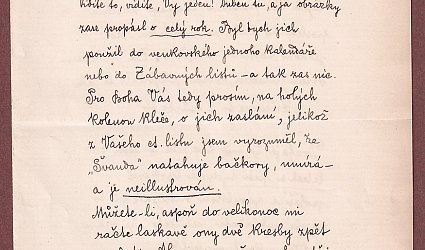 to, vidíte, Vy jeden! Duben tu, a já obrázky
zase propásl o celý rok. Byl bych jich
použil do venkovského jednoho kalendáře
nebo do Zábavných listů – a tak zas nic.
Pro Boha Vás tedy prosím, na holých
kolenou kleče, o jich zaslání, jelikož
z Vašeho ct. listu jsem vyrozuměl, že
"Švanda" natahuje bačkory, umírá –
a je neillustrován.
Můžete-li, aspoň do velikonoc mi
račte laskavě ony dvě kresby zpět